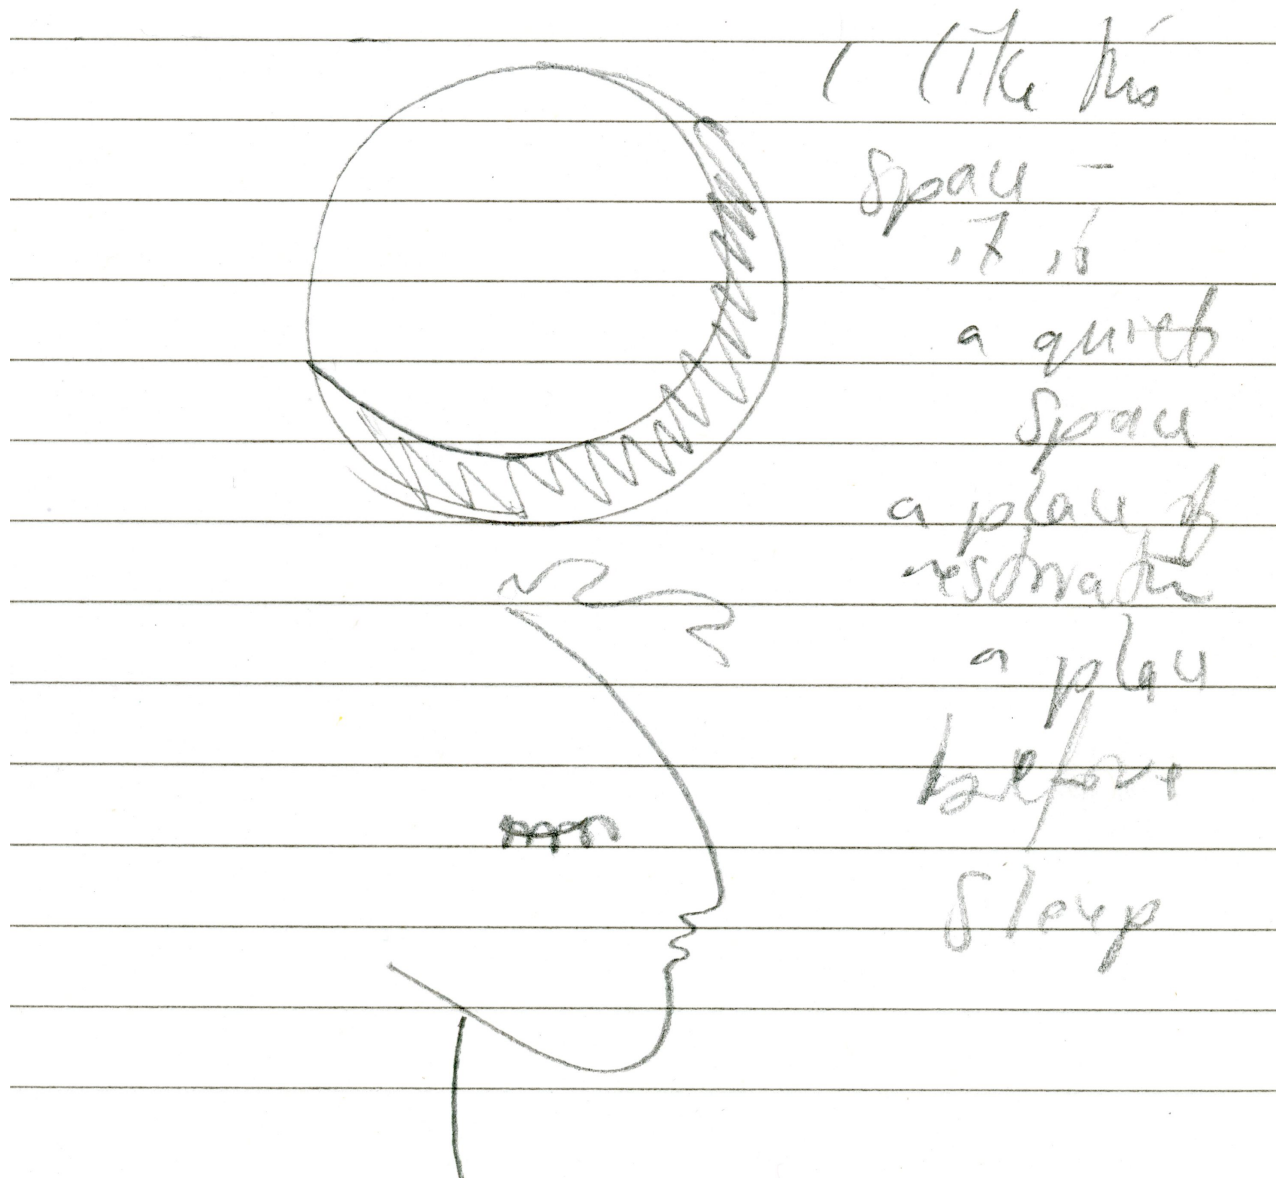 I like this
space -
it is
a quiet
space
a place of
restoration
a place
before
sleep